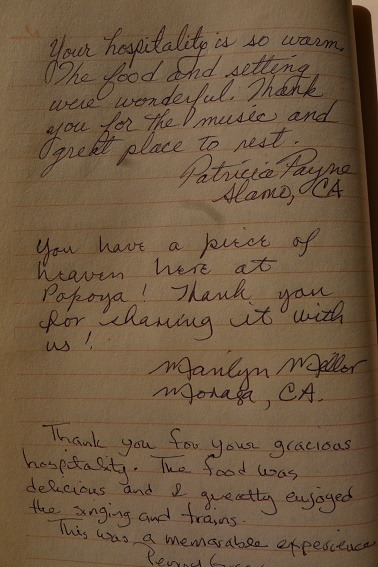 Your hospitality is so warm.
The food and setting
were wonderful. Thank
you for the music and
great place to rest.
Patricia Payne
Alamo, CA
You have a piece of
heaven here at
Popoya! Thank you
for sharing it with
us!
Marilyn
Moraga, CA.
Thank you for your gracious
hospitality. The food was
delicious and I greatly enjoyed
the singing and trains.
This was a memorable experience